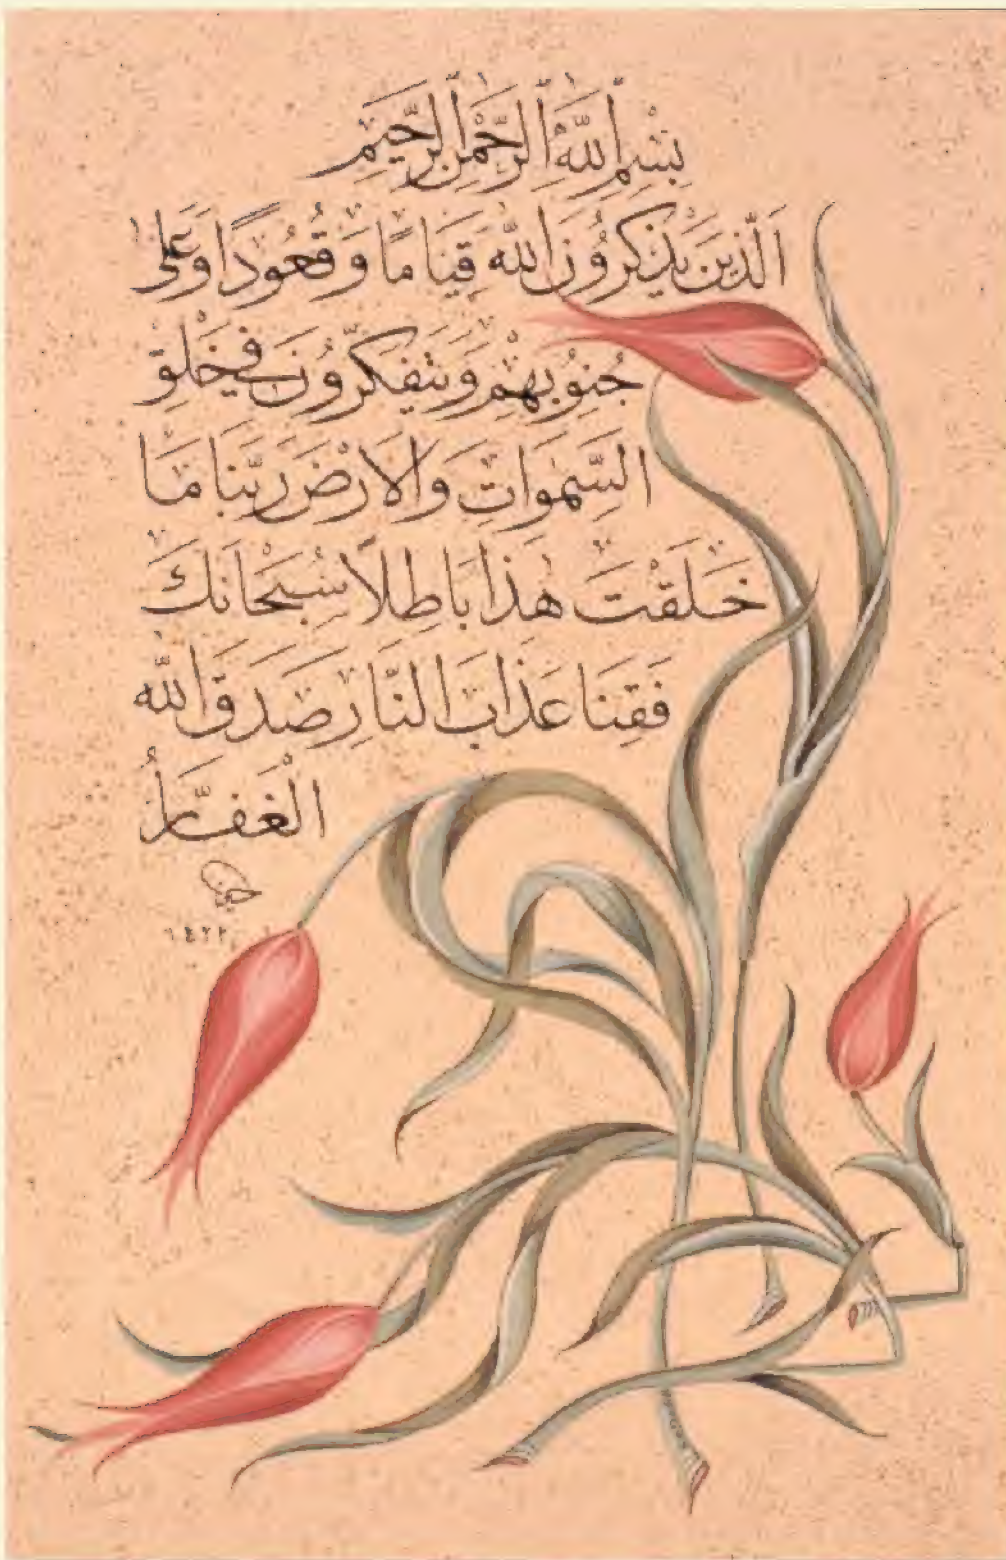 بِسْمِ اللّٰهِ الرَّحْمٰنِ الرَّحِيمِ
اَلَّذِينَ يَذْكُرُونَ اللّٰهَ قِيَامًا وَقُعُودًا وَعَلٰى
جُنُوبِهِمْ وَيَتَفَكَّرُونَ فِي خَلْقِ
السَّمٰوَاتِ وَالْاَرْضِ رَبَّنَا مَا
خَلَقْتَ هٰذَا بَاطِلًا سُبْحَانَكَ
فَقِنَا عَذَابَ النَّارِ صَدَقَ اللّٰهُ
الْغَفَّارُ
١٤٢٢